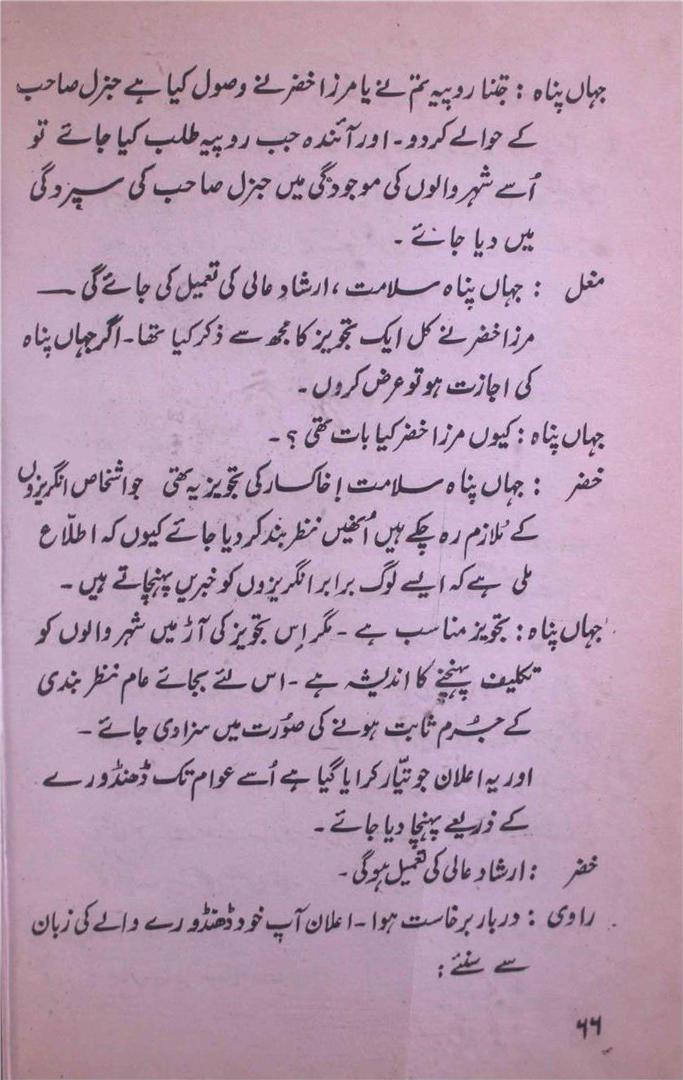 جہاں پناہ : جتنا روپیہ تم نے یا مرزا خضر نے وصول کیا ہے جنرل صاحب
کے حوالے کر دو۔ اور آئندہ جب روپیہ طلب کیا جائے تو
اُسے شہر والوں کی موجودگی میں جنرل صاحب کی سپردگی
میں دیا جائے ۔
مغل : جہاں پناہ سلامت ، ارشادِ عالی کی تعمیل کی جائے گی —
مرزا خضر نے کل ایک تجویز کا مجھ سے ذکر کیا تھا۔ اگر جہاں پناہ
کی اجازت ہو تو عرض کروں ۔
جہاں پناہ : کیوں مرزا خضر کیا بات تھی ؟ ۔
خضر : جہاں پناہ سلامت ! خاکسار کی تجویز یہ تھی جو اشخاص انگریزوں
کے مُلازم رہ چکے ہیں اُنھیں نظر بند کر دیا جائے کیوں کہ اطلّاع
ملی ہے کہ ایسے لوگ برابر انگریزوں کو خبریں پہنچاتے ہیں ۔
جہاں پناہ : تجویز مناسب ہے ۔ مگر اِس تجویز کی آڑ میں شہر والوں کو
تکلیف پہنچنے کا اندیشہ ہے ۔ اس لئے بجائے عام نظر بندی
کے جُرم ثابت ہونے کی صُورت میں سزا دی جائے ۔
اور یہ اعلان جو تیّار کرایا گیا ہے اُسے عوام تک ڈھنڈورے
کے ذریعے پہنچا دیا جائے ۔
خضر : ارشادِ عالی کی تعمیل ہو گی ۔
راوی : دربار برخاست ہوا ۔ اعلان آپ خود ڈھنڈورے والے کی زبان
سے سنئے :
۶۶